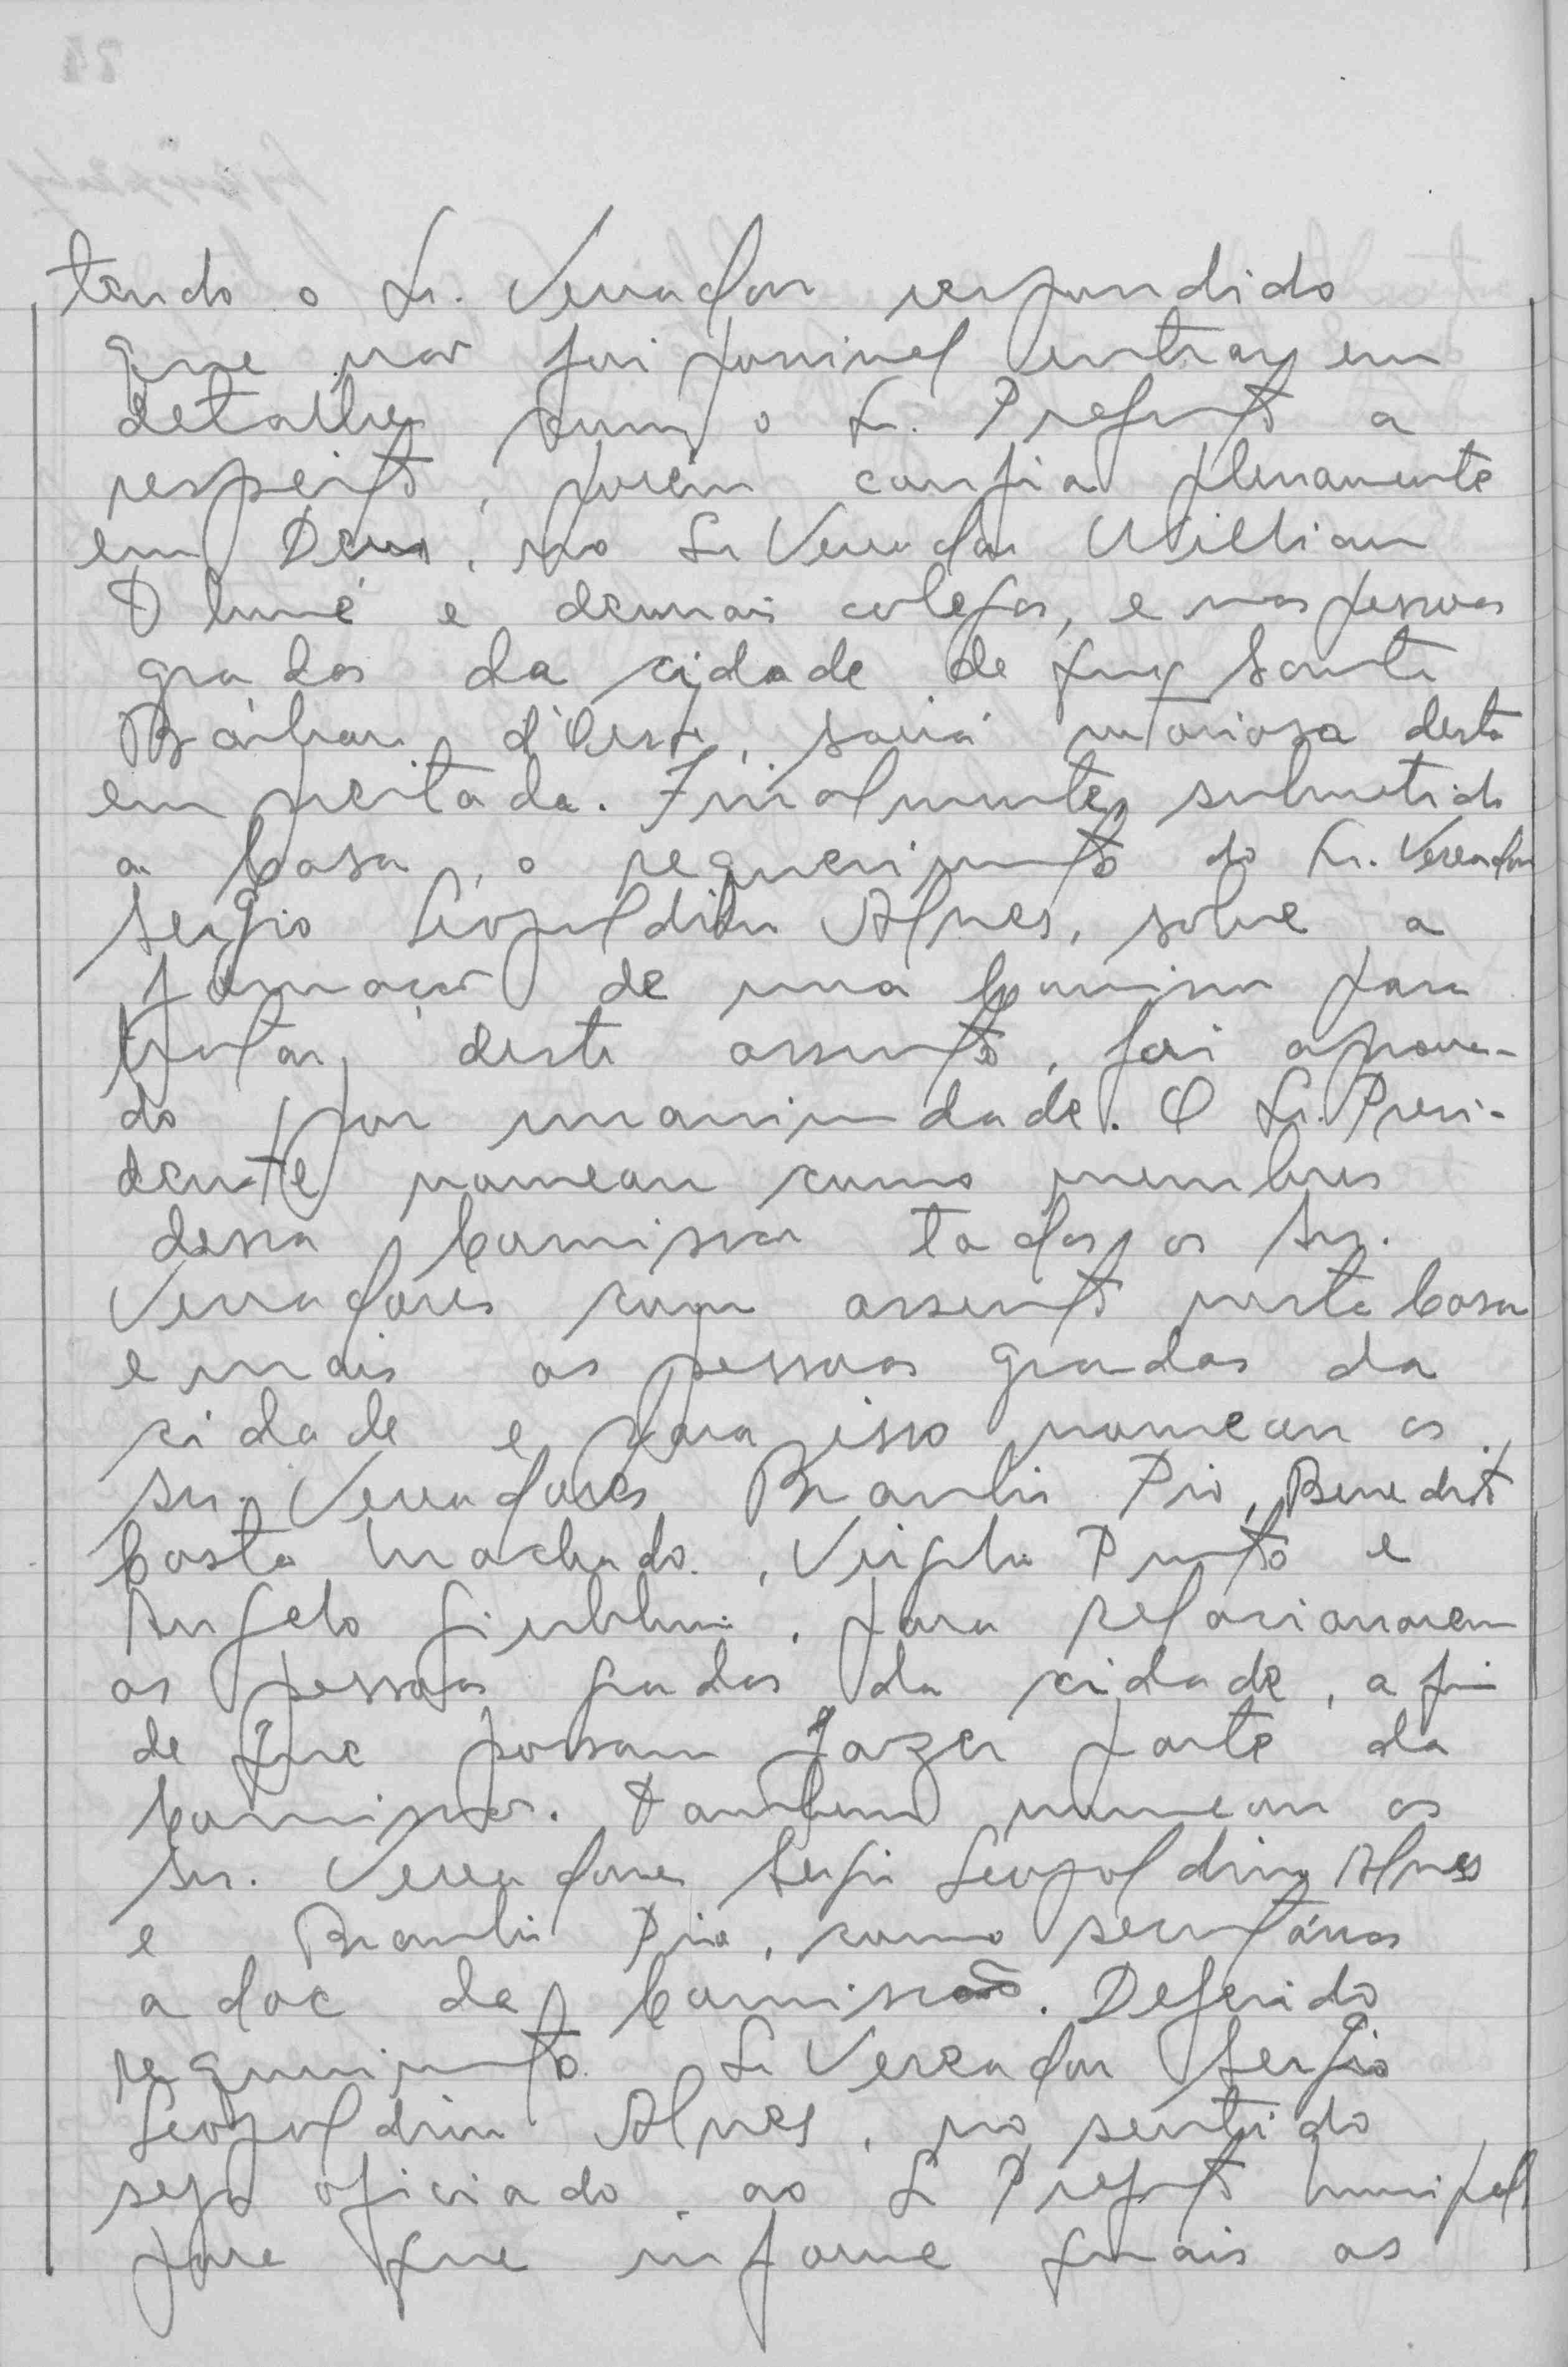 tendo o Sr. Vereador respondido
que não foi possivel entrar em
detalhes com o Sr. Prefeito a
respeito, porém confia plenamente
em Deus, no Sr Vereador Willian
e demais colegas, e nas pessoas
gradas da cidade de que Santa
Bárbara d'Oeste, sairá vitoriosa desta
empreitada. Finalmente, submetido
a Casa, o requerimento do Sr. Vereador
Sergio Leopoldino Alves, sobre a
formação de uma Comissão para
tratar deste assunto, foi aprova-
do por unanimidade. O Sr. Presi-
dente nomeou como membros
dessa Comissão todos os Srs.
Vereadores com assento nesta Casa
e mais as pessoas gradas da
cidade e para isso nomeou os
srs. Vereadores Braulio Pio, Benedito
Costa Machado, Virgilio Pinto e
Angelo Giubbina, para relacionarem
as pessoas gradas da cidade, a fim
de que possam fazer parte da
Comissão. Tambem nomeou os
Srs. Vereadores Sergio Leopoldino Alves
e Braulio Pio, como secretários
adoc da Comissão. Deferido
requerimento Sr Vereador Sergio
Leopoldino Alves, no sentido
seja oficiado ao Sr Prefeito Municipal
para que informe quais as